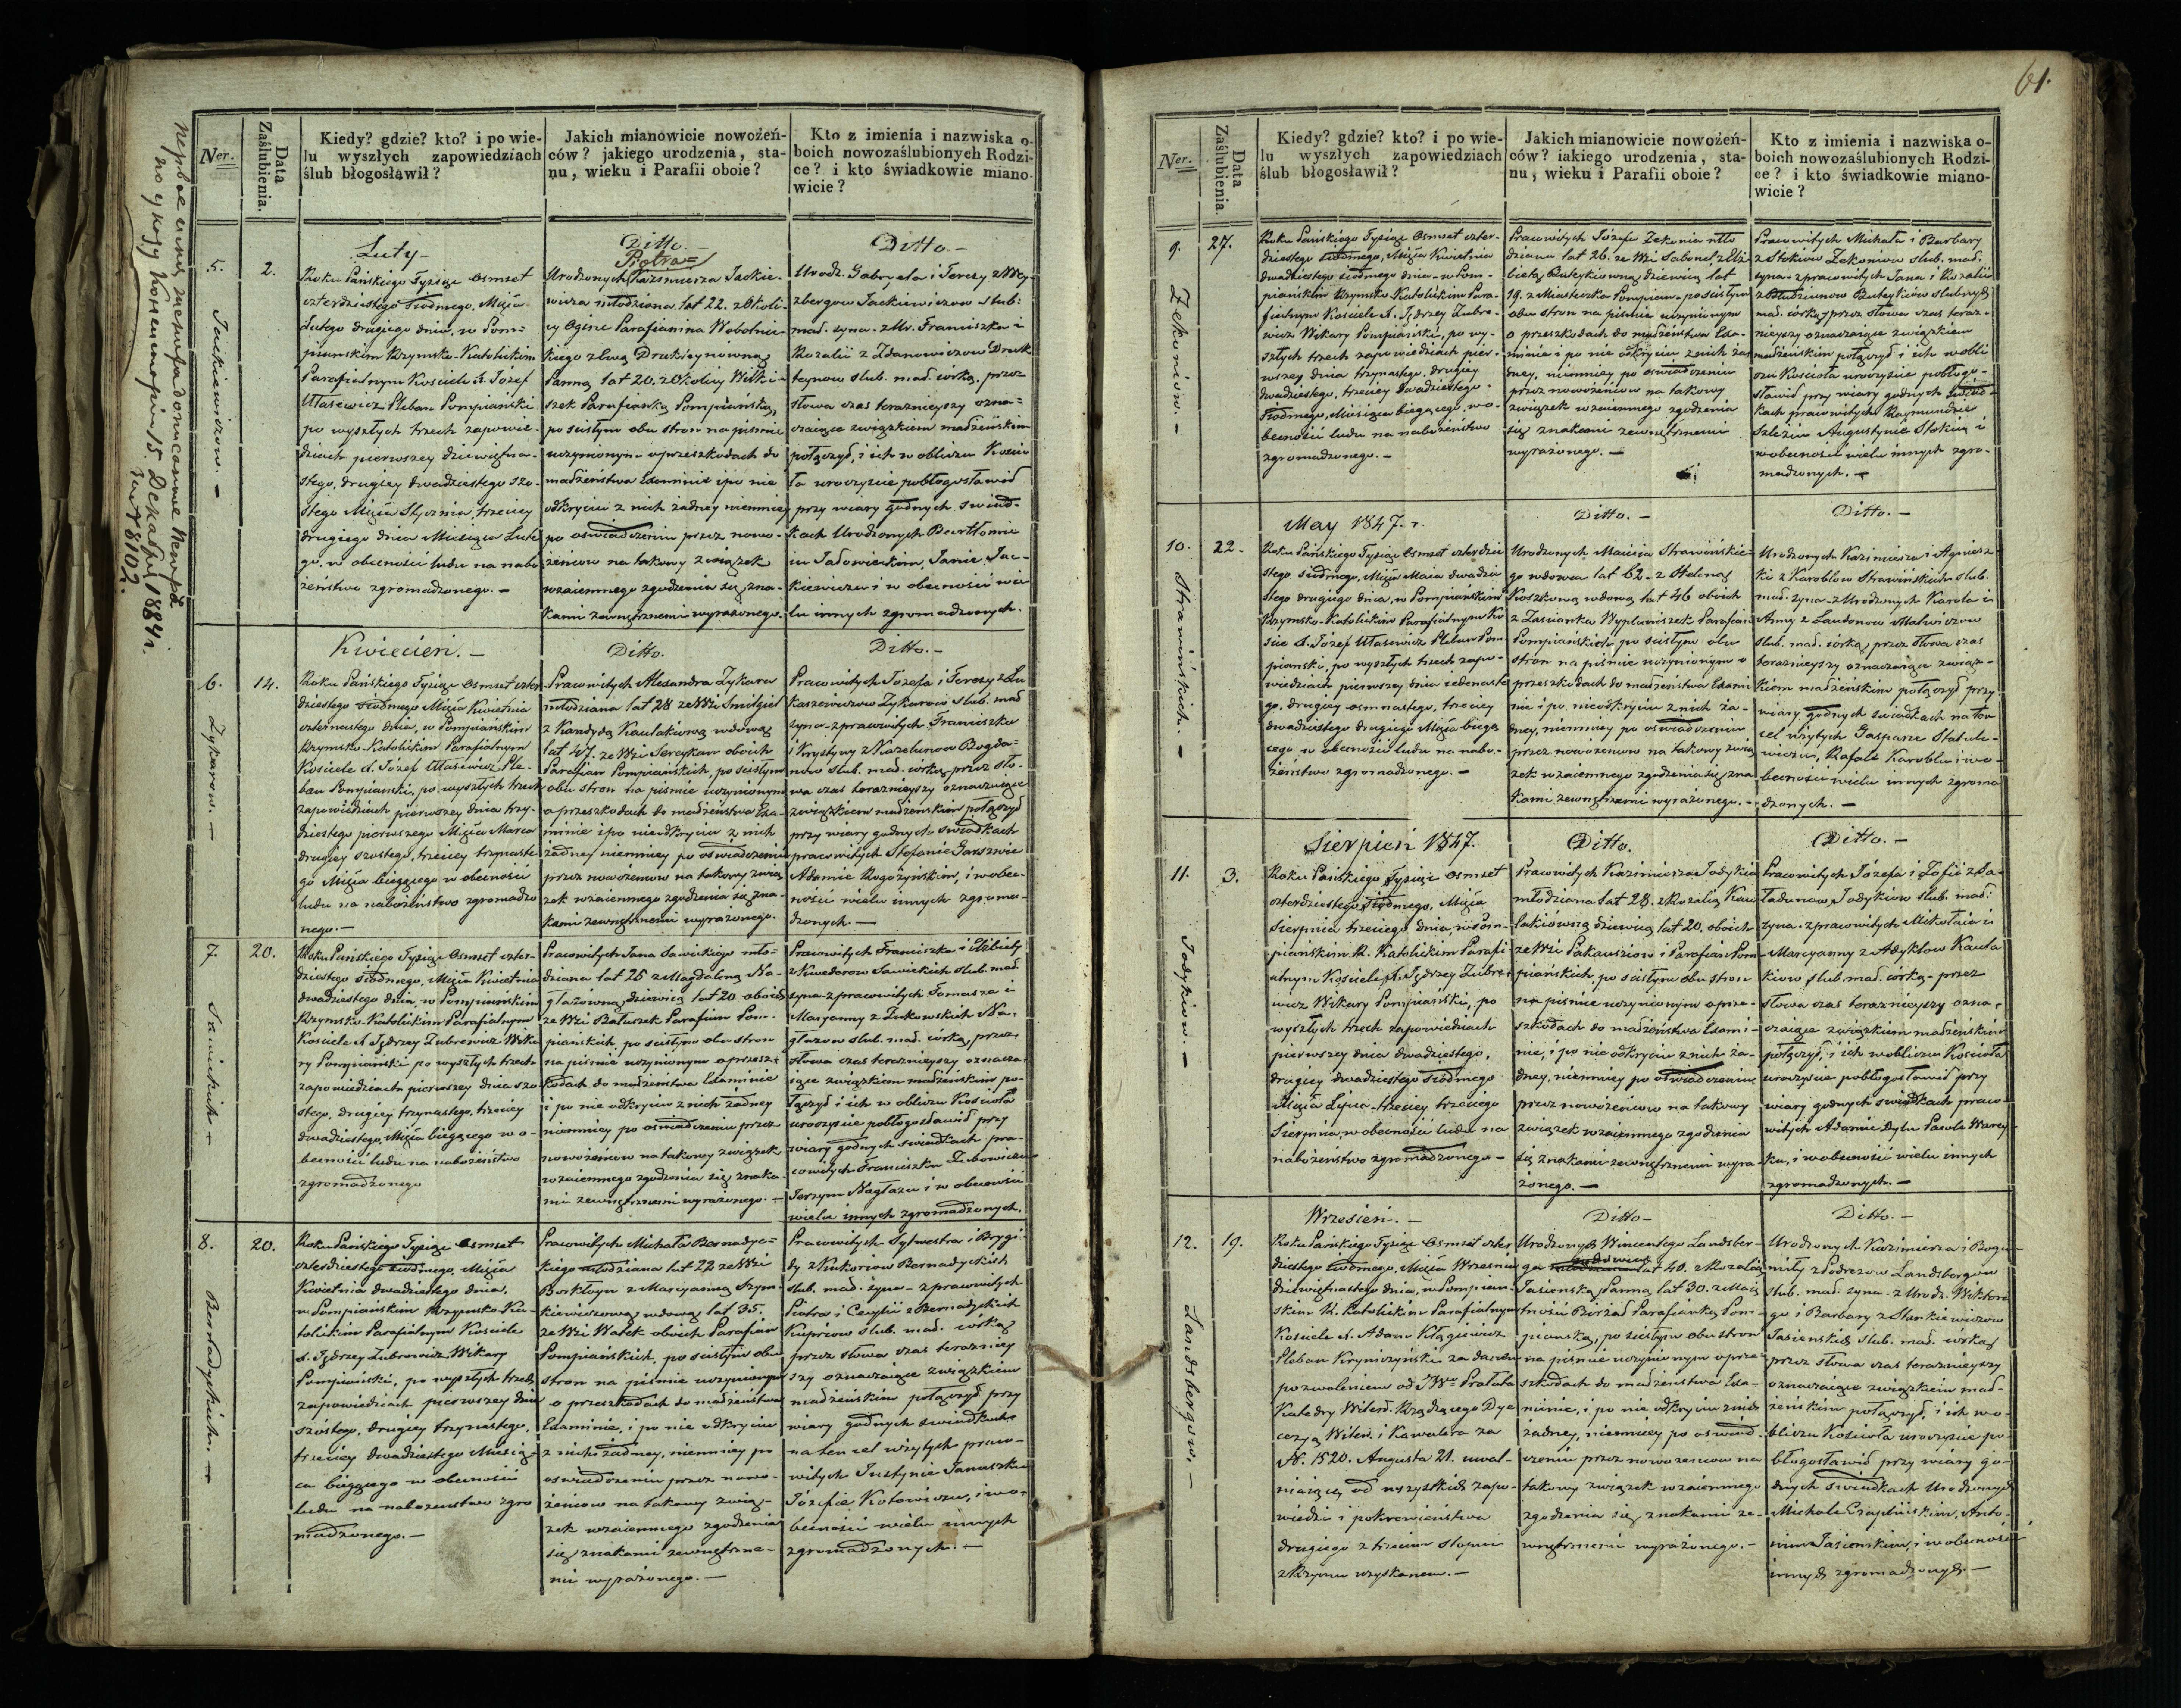 61.
Ner.
Data Zaślubienia.
Kiedy? gdzie? kto? i po wie-
lu wyszłych zapowiedziach
ślub błogosławił?
Jakich mianowicie nowożeń-
ców? jakiego urodzenia, sta-
nu, wieku i Parafii oboie?
Kto z imienia i nazwiska o-
boich nowozaślubionych Rodzi-
ce? i kto świadkowie miano-
wicie?
5.
2.
Luty
Roku Pańskiego Tysiąc Osmset
czterdziestego siodmego, Mięsia
Lutego drugiego dnia, w Pom=
pianskim Rzymsko-Katolickim
Parafialnym Kościele X. Józef
Pleban Pompianski
po wyszłych trzech zapowie-
dziach pierwszey dziewiętna-
stego, drugiey dwadziestego szo-
stego Stycznia, trzeciey
drugiego dnia Miesiąca Lute
go, w obecności ludu na nabo
żeństwo zgromadzonego.
Ditto.
Piotra
Urodzonych Kazimierza Jackie-
wicza młodziana lat 22. z Okoli-
cy Ogine Parafianina Wobolnic-
kiego z Ewą
Panną lat 20. z Okolicy
Parafianką Pompiańską,
po scisłym obu stron na pismie
uczynionym o przeszkodach do
madżeństwa Examinie i po nie
odkryciu z nich żadney niemniey
po oswiadczeniu przez nowo-
żeńcow na takowy związek
wzaiemnego zgodzenia się zna-
kami zewnętrznemi wyrażonego.
Ditto.
Urodz. Gabryela i Teresy z Wey
zbergow Jackiewiczow slub:
mad. syna. z Ur. Franciszka i
Rozalii z Zdanowiczow
slub. mad. córką, przez
słowa czas teraznieyszy ozna=
czaiące związkiem madżeńskim
połączył, i ich w obliczu Kościo
ła uroczyscie pobłogosławił
przy wiary godnych swiad-
kach Urodzonych Bartłomie
iu Janie Jac-
kiewiczu i w obecności wie
lu innych zgromadzonych.
Jackiewiczow.
6.
14.
Kwiecień.
Roku Pańskiego Tysiąc Osmset czter
dziestego siodmego Mięsia Kwietnia
czternastego dnia, w Pompiańskim
Rzymsko Katolickim Parafialnym
Kościele X. Józef Ple-
ban Pompianski, po wyszłych trzech
zapowiedziach pierwszey dnia trzy-
dziestego pierwszego Mięsia Marca
drugiey szostego, trzeciey trzynaste
go Mięsia bieżącego w obecności
ludu na nabożeństwo zgromadzo
nego.
Ditto.
Pracowitych Alexandra Zykara
młodziana lat 28 ze Wsi
z Kandydą Kaulakiową wdową
lat 47. ze Wsi oboich
Parafian Pompiańskich, po scisłym
obu stron na pismie uczynionym
o przeszkodach do madżeństwa Exa-
minie i po nieodkryciu z nich
żadney niemniey po oświadczeniu
przez nowożeńcow na takowy związ
zek wzaiemnego zgodzenia się zna-
kami zewnętrznemi wyrażonego.
Ditto.
Pracowitych Józefa i Teresy z Łu
kaszewiczow Zykarow slub. mad
syna. z pracowitych Franciszka
i Krystyny z Bogda-
now slub. mad. córką, przez sło-
wa czas teraznieyszy oznaczaiące
związkiem madżeńskim połączył
przy wiary godnych świadkach
pracowitych Stefanie
Adamie i w obec-
ności wielu innych zgroma-
dzonych.
Zykarow.
7.
20.
Roku Pańskiego Tysiąc Osmset czter-
dziestego siodmego, Mięsia Kwietnia
dwadziestego dnia, w Pompianskim
Rzymsko Katolickim Parafialnym
Kościele X Jędrzey Zubrewicz Wika
ry Pompiański po wyszłych trzech
zapowiedziach pierwszey dnia szo
stego, drugiey trzynastego, trzeciey
dwadziestego, Mięsia bieżącego w o-
becności ludu na nabożeństwo
zgromadzonego
Pracowitych Jana Sawickiego mło=
dziana lat 25 z Magdaleną Na-
głazowną, dziewicą lat 20 oboich
ze Wsi Parafian Pom-
piańskich, po scisłym obu stron
na pismie uczynionym o przesz-
kodach do madżeństwa Examinie
i po nie odkryciu z nich żadney
niemniey po oświadczeniu przez
nowożeńcow na takowy związek
wzaiemnego zgodzenia się znaka-
mi zewnętrznemi wyrażonego.
Pracowitych Franciszka i Elżbiety
Sawickich slub. mad.
syna. z pracowitych Tomasza i
Maryanny z Żukowskich Na-
głazow slub. mad. córką, przez
słowa czas teraznieyszy oznacza-
iące związkiem madżeńskim po-
łączył i ich w obliczu Kościoła
uroczyscie pobłogosławił przy
wiary godnych swiadkach pra-
cowitych Franciszku
Jerzym Nagłazu i w obecności
wielu innych zgromadzonych.
Sawickich
8.
20.
Roku Pańskiego Tysiąc Osmset
czterdziestego siodmego, Mięsia
Kwietnia dwadziestego dnia,
w Pompianskim Rzymsko-Ka-
tolickim Parafialnym Kościele
X. Jędrzey Zubrewicz Wikary
Pompianski, po wyszłych trzech
zapowiedziach pierwszey dnia
szóstego, drugiey trzynastego,
trzeciey dwadziestego Miesią-
ca bieżącego w obecności
ludu na nabożeństwo zgro
madzonego.
Pracowitych Michała Bernadyc=
kiego młodziana lat 22 ze Wsi
z Maryanną Szym-
kiewiczową, wdową lat 35.
ze Wsi oboich Parafian
Pompiańskich, po scisłym obu
stron na pismie uczynionym
o przeszkodach do madżeństwa
Examinie, i po nie odkryciu
z nich żadney, niemniey po
oswiadczeniu przez nowo-
żeńcow na takowy związ-
zek wzaiemnego zgodzenia
się znakami zewnętrzne-
mi wyrażonego.
Pracowitych Sylwestra i Brygi-
dy z Bernadyckich
slub. mad. syna. z pracowitych
Piotra i Cecylii z Bernadyckich
slub. mad. corką
przez słowa czas terazniey
szy oznaczaiące związkiem
madżeńskim połączył przy
wiary godnych swiadkach
na ten cel wziętych praco-
witych Justynie Januszku
Józefie Kotowiczu, i w o-
becności wielu innych
zgromadzonych.
Bernadyckich.
Ner.
Data Zaślubienia.
Kiedy? gdzie? kto? i po wie-
lu wyszłych zapowiedziach
ślub błogosławił?
Jakich mianowicie nowożeń-
ców? iakiego urodzenia, sta-
nu, wieku i Parafii oboie?
Kto z imienia i nazwiska o-
boich nowozaślubionych Rodzi-
ce? i kto świadkowie miano-
wicie?
9.
27.
Roku Pańskiego Tysiąc Osmset czter-
dziestego siodmego, Mięsia Kwietnia
dwadziestego siodmego dnia, w Pom-
piańskim Rzymsko Katolickim Para-
fialnym Kościele X. Jędrzey Zubre-
wicz Wikary Pompiański, po wy-
szłych trzech zapowiedziach pier-
wszey dnia trzynastego, drugiey
dwadziestego, trzeciey dwadziestego
siodmego, Miesiąca bieżącego, w o-
becności ludu na nabożeństwo
zgromadzonego.
Pracowitych Józefa Zekonia mło
dziana lat 26. ze Wsi z Elż
bietą dziewicą lat
19. z Miasteczka Pompian po scisłym
obu stron na pismie uczynionym
o przeszkodach do madżeństwa Exa-
minie i po nie odkryciu z nich żad
dney, niemniey po oswiadczeniu
przez nowożeńcow na takowy
związek wzaiemnego zgodzenia
się znakami zewnętrznemi
wyrażonego.
Pracowitych Michała i Barbary
z Zekoniow slub. mad.
syna. z pracowitych Jana i Rozalii
slubnych
mad. córką, przez słowa czas teraz-
nieyszy oznaczaiące związkiem
madżeńskim połączył i ich w obli
czu Kościoła uroczyscie pobłogo-
sławił przy wiary godnych swiad-
kach pracowitych Raymundzie
Augustynie i
w obecności wielu innych zgro-
madzonych.
Zekoniow.
10.
22.
May 1847. r.
Roku Pańskiego Tysiąc Osmset czterdzie
stego siodmego, Mięsia Maia dwadzie
stego drugiego dnia, w Pompianskim
Rzymsko-Katolickim Parafialnym Ko
ściele X. Józef Pleban Pom
pianski, po wyszłych trzech zapo-
wiedziach pierwszey dnia iedenaste
go, drugiey osmnastego, trzeciey
dwadziestego drugiego Mięsia bieżą
cego w obecności ludu na nabo-
żeństwo zgromadzonego.
Ditto.
Urodzonych Macieia Strawińskie-
go wdowca lat 62. z Heleną
Koszkową wdową lat 46 oboich
z Zascianka Parafian
Pompiańskich po scisłym obu
stron na pismie uczynionym o
przeszkodach do madżeństwa Exami
nie i po nieodkryciu z nich ża-
dney, niemniey po oswiadczeniu
przez nowożeńcow na takowy związ
zek wzaiemnego zgodzenia się zna
kami zewnętrznemi wyrażonego.
Ditto.
Urodzonych Kazimierza i Agniesz
ki z Karoblow Strawińskich slub.
mad. syna. z Urodzonych Karola i
Anny z Laudonow
slub. mad. córką, przez słowa czas
teraznieyszy oznaczaiące związ-
kiem madżeńskim połączył przy
wiary godnych swiadkach na ten
cel wziętych Gasparze
wiczu, Rafale Karoblu i w o-
becności wielu innych zgroma
dzonych.
Strawińskich.
11.
3.
Sierpień 1847.
Roku Pańskiego Tysiąc Osmset
czterdziestego siodmego, Mięsia
Sierpnia trzeciego dnia, w Pom-
piańskim R. Katolickim Parafi
alnym Kościele X. Jędrzey Zubre-
wicz Wikary Pompiański, po
wyszłych trzech zapowiedziach
pierwszey dnia dwadziestego,
drugiey dwadziestego siodmego
Mięsia Lipca, trzeciey trzeciego
Sierpnia, w obecności ludu na
nabożeństwo zgromadzonego
Ditto.
Pracowitych Kazimierza Jodykia
młodziana lat 28. z Rozalią Kau
lakiowną dziewicą lat 20. oboich
ze Wsi Parafian Pom
piańskich, po scisłym obu stron
na pismie uczynionym o prze-
szkodach do madżeństwa Exami-
nie, i po nie odkryciu z nich ża-
dney, niemniey po oswiadczeniu
przez nowożeńcow na takowy
związek wzaiemnego zgodzenia
się znakami zewnętrznemi wyra
żonego.
Ditto.
Pracowitych Józefa i Zofii
Jodykiow slub. mad.
syna. z pracowitych Mikołaia i
Maryanny Kaula
kiow slub. mad. córką, przez
słowa czas teraznieyszy ozna-
czaiące związkiem madżeńskim
połączył, i ich w obliczu Kościoła
uroczyscie pobłogosławił przy
wiary godnych swiadkach praco-
witych Adamie
i w obecności wielu innych
zgromadzonych.
Jodykiow.
12.
19.
Wrzesień.
Roku Pańskiego Tysiąc Osmset czter
dziestego siodmego, Mięsia Wrzesnia
dziewiętnastego dnia, w Pompian-
skim R. Katolickim Parafialnym
Kościele X. Adam
Pleban za daniem
pozwoleniem od Prałata
Katedry Wileń. Rządzącego Dye
cezyą Wileń. i Kawalera za
N. 1520. Augusta 21. uwal-
niaiącą od wszystkich zapo-
wiedzi i pokrewieństwa
drugiego z trzecim stopni
z Rzymu uzyskanem.
Ditto
Urodzonych Wincentego Landsber-
ga lat 40. z Rozalią
Jasienską, Panną lat 30. z Maię
tności Parafianką Pom-
pianską, po scisłym obu stron
na pismie uczynionym o prze-
szkodach do madżeństwa Exa-
minie, i po nie odkryciu z nich
żadney, niemniey po oswiad-
czeniu przez nowożeńcow na
takowy związek wzaiemnego
zgodzenia się znakami ze-
wnętrznemi wyrażonego.
Ditto.
Urodzonych Kazimierza i Bogu-
miły Landsbergow
slub. mad. syna. z Urodz. Wikto
go i Barbary z Stankiewiczow
Jasienskich slub. mad. corką
przez słowa czas teraznieyszy
oznaczaiące związkiem mad-
żeńskim połączył, i ich w o-
bliczu Kościoła uroczyscie po
błogosławił przy wiary go-
dnych swiadkach Urodzonych
Michale Czaplińskim, Anto-
nim Jasienskim, i w obecności
innych zgromadzonych.
Landsbergow.